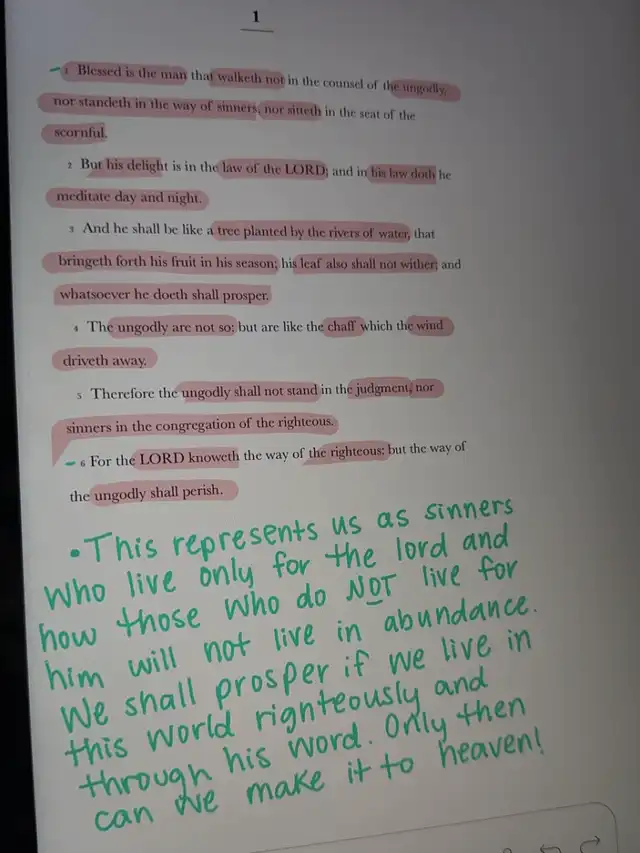 1
1 Blessed is the man that walketh not in the counsel of the ungodly,
nor standeth in the way of sinners, nor sitteth in the seat of the
scornful.
2 But his delight is in the law of the LORD; and in his law doth he
meditate day and night.
3 And he shall be like a tree planted by the rivers of water, that
bringeth forth his fruit in his season; his leaf also shall not wither; and
whatsoever he doeth shall prosper.
4 The ungodly are not so: but are like the chaff which the wind
driveth away.
5 Therefore the ungodly shall not stand in the judgment, nor
sinners in the congregation of the righteous.
6 For the LORD knoweth the way of the righteous: but the way of
the ungodly shall perish.
• This represents us as sinners
who live only for the lord and
how those who do NOT live for
him will not live in abundance.
We shall prosper if we live in
this world rignteously and
through his word. Only then
can we make it to heaven!